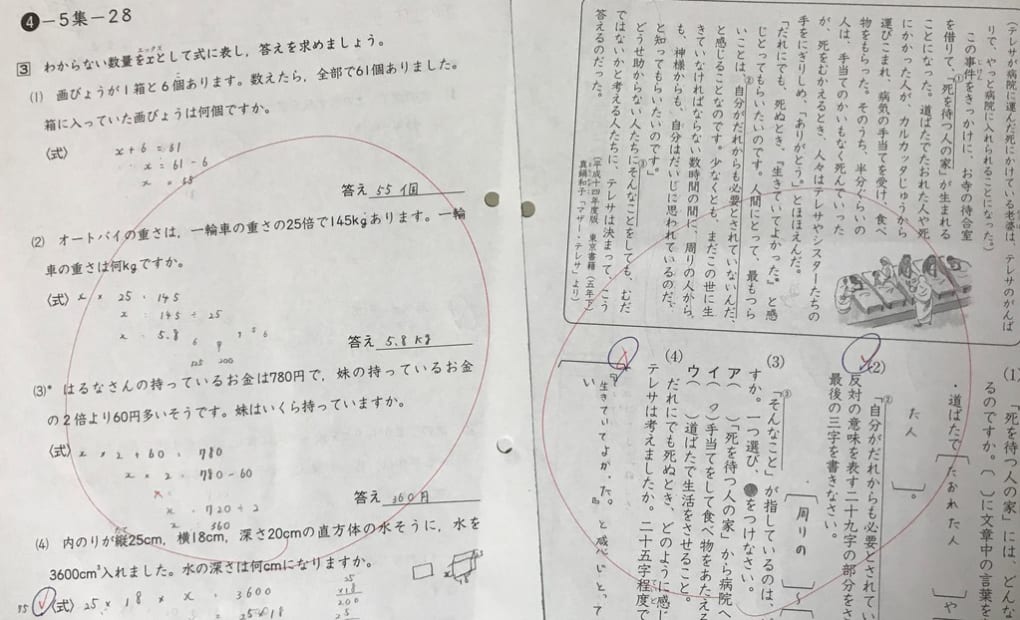 ❹-5集-28
3 わからない数量をxとして式に表し，答えを求めましょう。
エックス
(1) 画びょうが1箱と6個あります。数えたら，全部で61個ありました。
箱に入っていた画びょうは何個ですか。
〈式〉 x + 6 = 61
x = 61 - 6
x = 55
答え 55個
(2) オートバイの重さは，一輪車の重さの25倍で145kgあります。一輪
車の重さは何kgですか。
〈式〉 x × 25 = 145
x = 145 ÷ 25
x = 5.8
125 200
答え 5.8kg
(3)* はるなさんの持っているお金は780円で，妹の持っているお金
の2倍より60円多いそうです。妹はいくら持っていますか。
〈式〉 x × 2 + 60 = 780
x × 2 = 780 - 60
x = 720 ÷ 2
x = 360
答え 360円
(4) 内のりが縦25cm，横18cm，深さ20cmの直方体の水そうに，水を
たて
3600cm³入れました。水の深さは何cmになりますか。
〈式〉 25 × 18 × x = 3600
25×18
25
×18
200
25
(テレサが病院に運んだ死にかけている老婆は、テレサのがんば
りで、やっと病院に入れられることになった。)
この事件をきっかけに、お寺の待合室
を借りて、①「死を待つ人の家」が生まれる
ことになった。道ばたでたおれた人や死
にかかった人が、カルカッタじゅうから
運びこまれ、病気の手当てを受け、食べ
物をもらった。そのうち、半分ぐらいの
人は、手当てのかいもなく死んでいった
が、死をむかえるとき、人々はテレサやシスターたちの
手をにぎりしめ、「ありがとう。」とほほえんだ。
「だれにでも、死ぬとき、『生きていてよかった。』と感
じとってもらいたいのです。人間にとって、最もつら
いことは、②自分がだれからも必要とされていないんだ、
と感じることなのです。少なくとも、まだこの世に生
きていなければならない数時間の間に、周りの人から
も、神様からも、自分はだいじに思われているのだ、
と知ってもらいたいのです。」
どうせ助からない人たちに③そんなことをしても、むだ
ではないかと考える人たちに、テレサは決まって、こう
答えるのだった。
(平成十四年度版 東京書籍(五年下)
真鍋和子「マザー・テレサ」より)
(1) 「死を待つ人の家」には、どんな
るのですか。( )に文章中の言葉を
・道ばたで［たおれた人
た人 ］。
］や
(2) ②「自分がだれからも必要とされてい
反対の意味を表す二十九字の部分をさ
最後の三字を書きなさい。
［周りの］〜
(3) ③「そんなこと」が指しているのは、
すか。一つ選び、をつけなさい。
ア( )「死を待つ人の家」から病院へ
イ( )手当てをして食べ物をあたえる
ウ( )道ばたで生活をさせること。
(4) だれにでも死ぬとき、どのように感じ
テレサは考えましたか。二十五字程度で
ていど
『生きていてよかった。』と感じとって
い